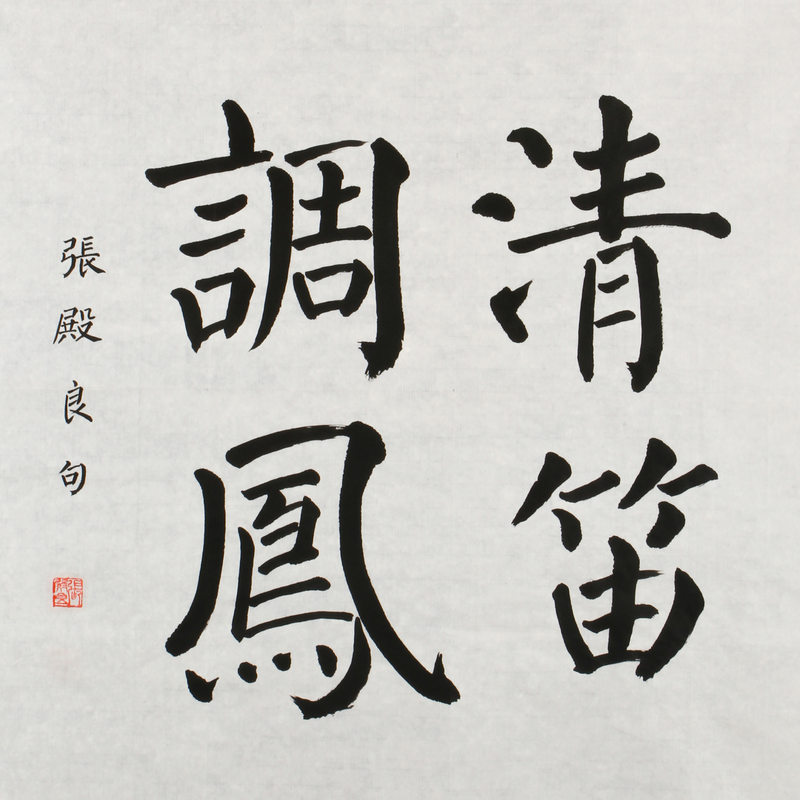 清笛
調鳳
張殿良句